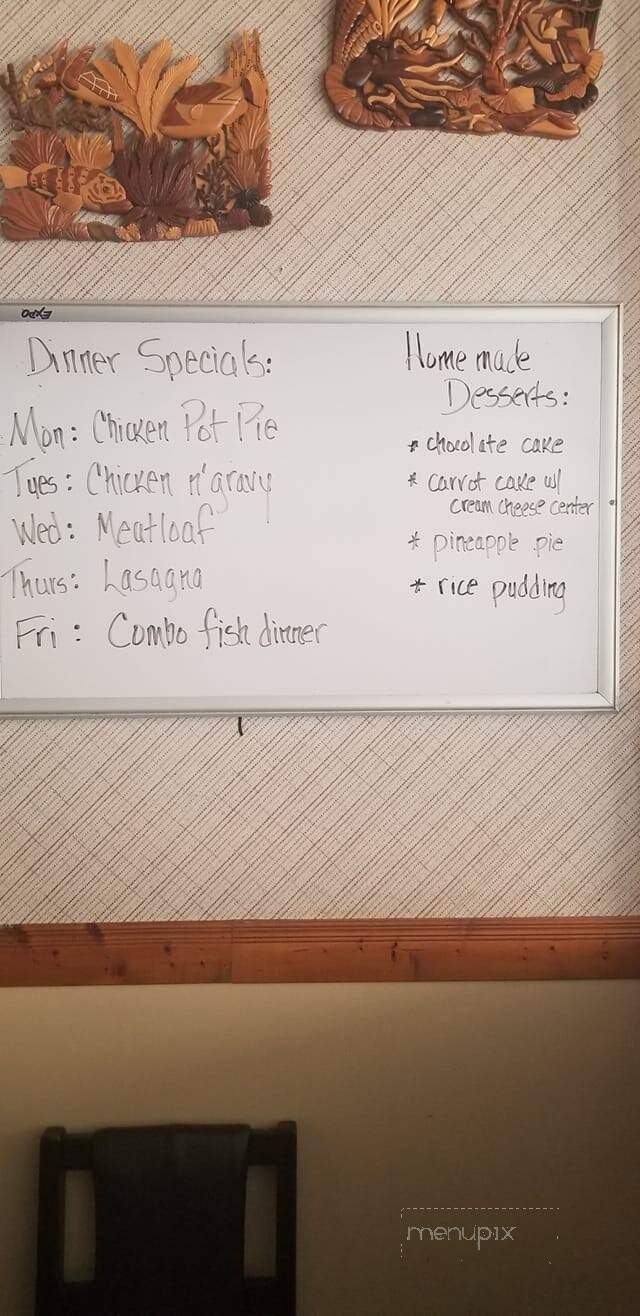 EXPO
Dinner Specials:
Mon: Chicken Pot Pie
Tues: Chicken n' gravy
Wed: Meatloaf
Thurs: Lasagna
Fri: Combo fish dinner
Home made
Desserts:
* chocolate cake
* carrot cake w/
cream cheese center
* pineapple pie
* rice pudding
menupix